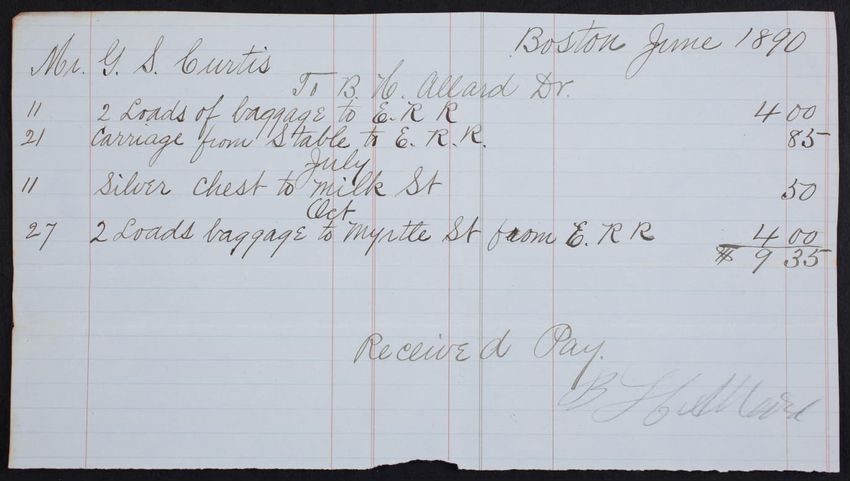 Boston June 1890
Mr. G. S. Curtis
To B. H. Allard Dr.
11 2 Loads of baggage to E. R R 4 00
21 Carriage from Stable to E. R. R. 85
July
11 Silver Chest to Milk St 50
Oct
27 2 Loads baggage to Myrtle St from E. R R 4 00
$ 9 35
Received Pay.
B H Allard